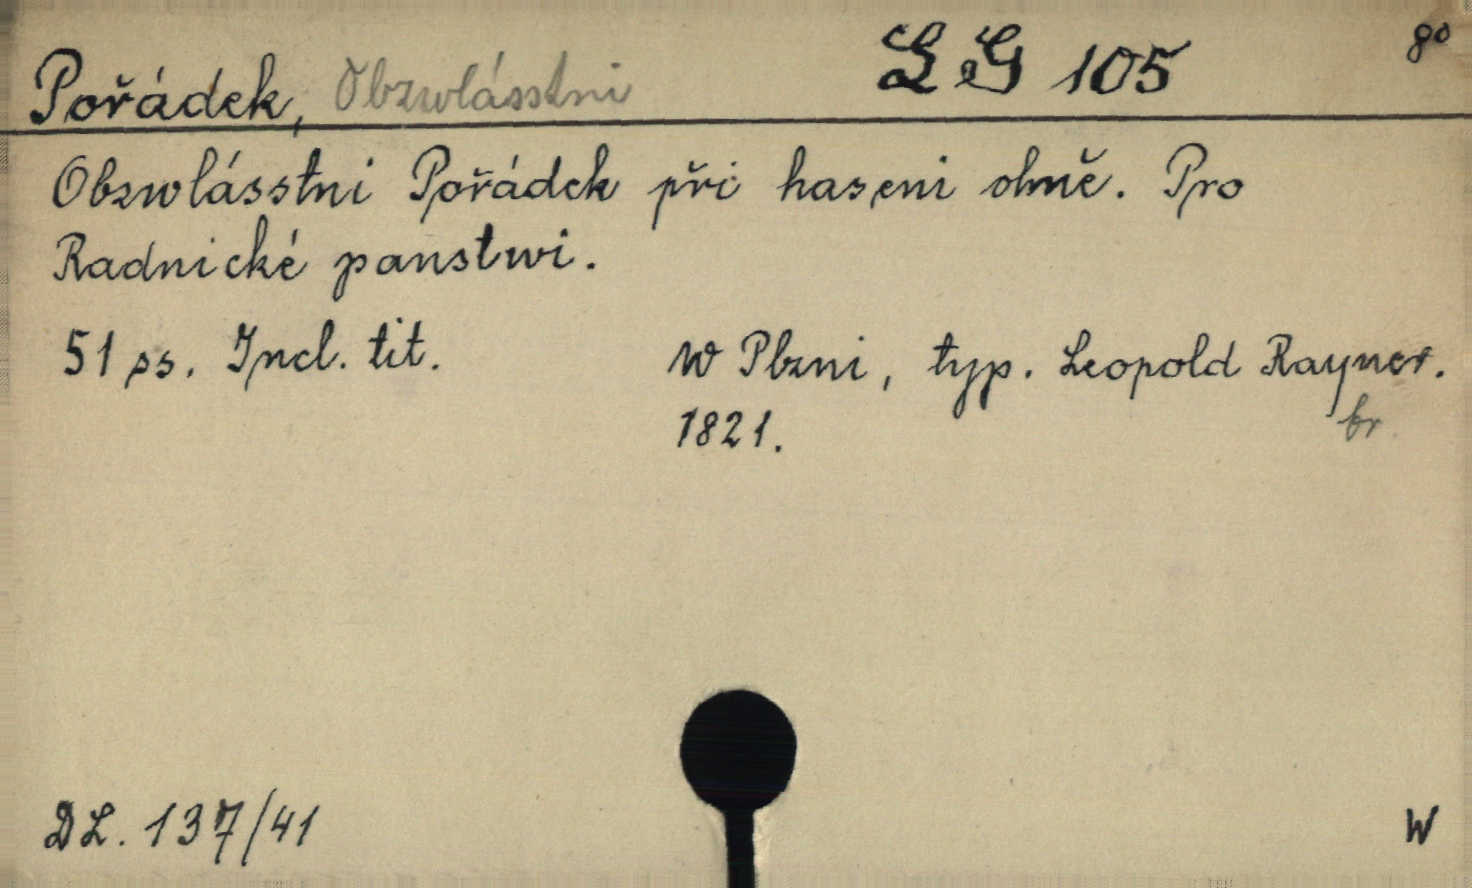 Pořádek, Obzwlásstni LG 105 8°
Obzwlásstni Pořádek při haseni ohně. Pro
Radnické panstwi.
51 ss. Incl. tit. W Plzni, typ. Leopold Rayner.
1821. br.
DL. 137/41 W